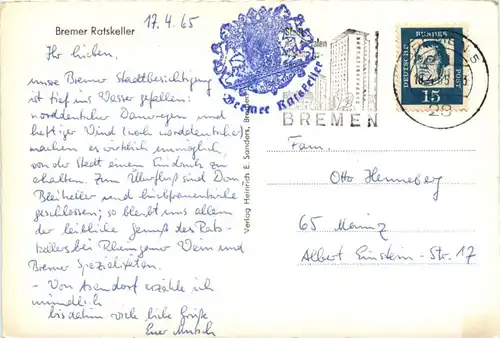 Bremer Ratskeller
17.4.65
Ihr lieben,
unsre Bremer Stadtbesichtigung
ist tief ins Wasser gefallen:
norddeutscher Dauerregen und
heftiger Wind (noch norddeutscher)
machen es wirklich unmöglich
von der Stadt einen Eindruck zu
erhalten. Zum Überfluß sind Dom
Bleikeller und Liebfrauenkirche
geschlossen; so bleibt uns allein
der leibliche Genuß des Rats-
kellers bei Rheingauer Wein und
Bremer Spezialitäten.
- Von Asendorf erzähle ich
mündlich
bis dahin viele liebe Grüße
Euer
Bremer Ratskeller
Verlag Heinrich E. Sanders, Bremen
BREMEN
DEUTSCHE BUNDES POST
15
28
Fam.
Otto Henneberg
65 Mainz
Albert Einstein-Str. 17